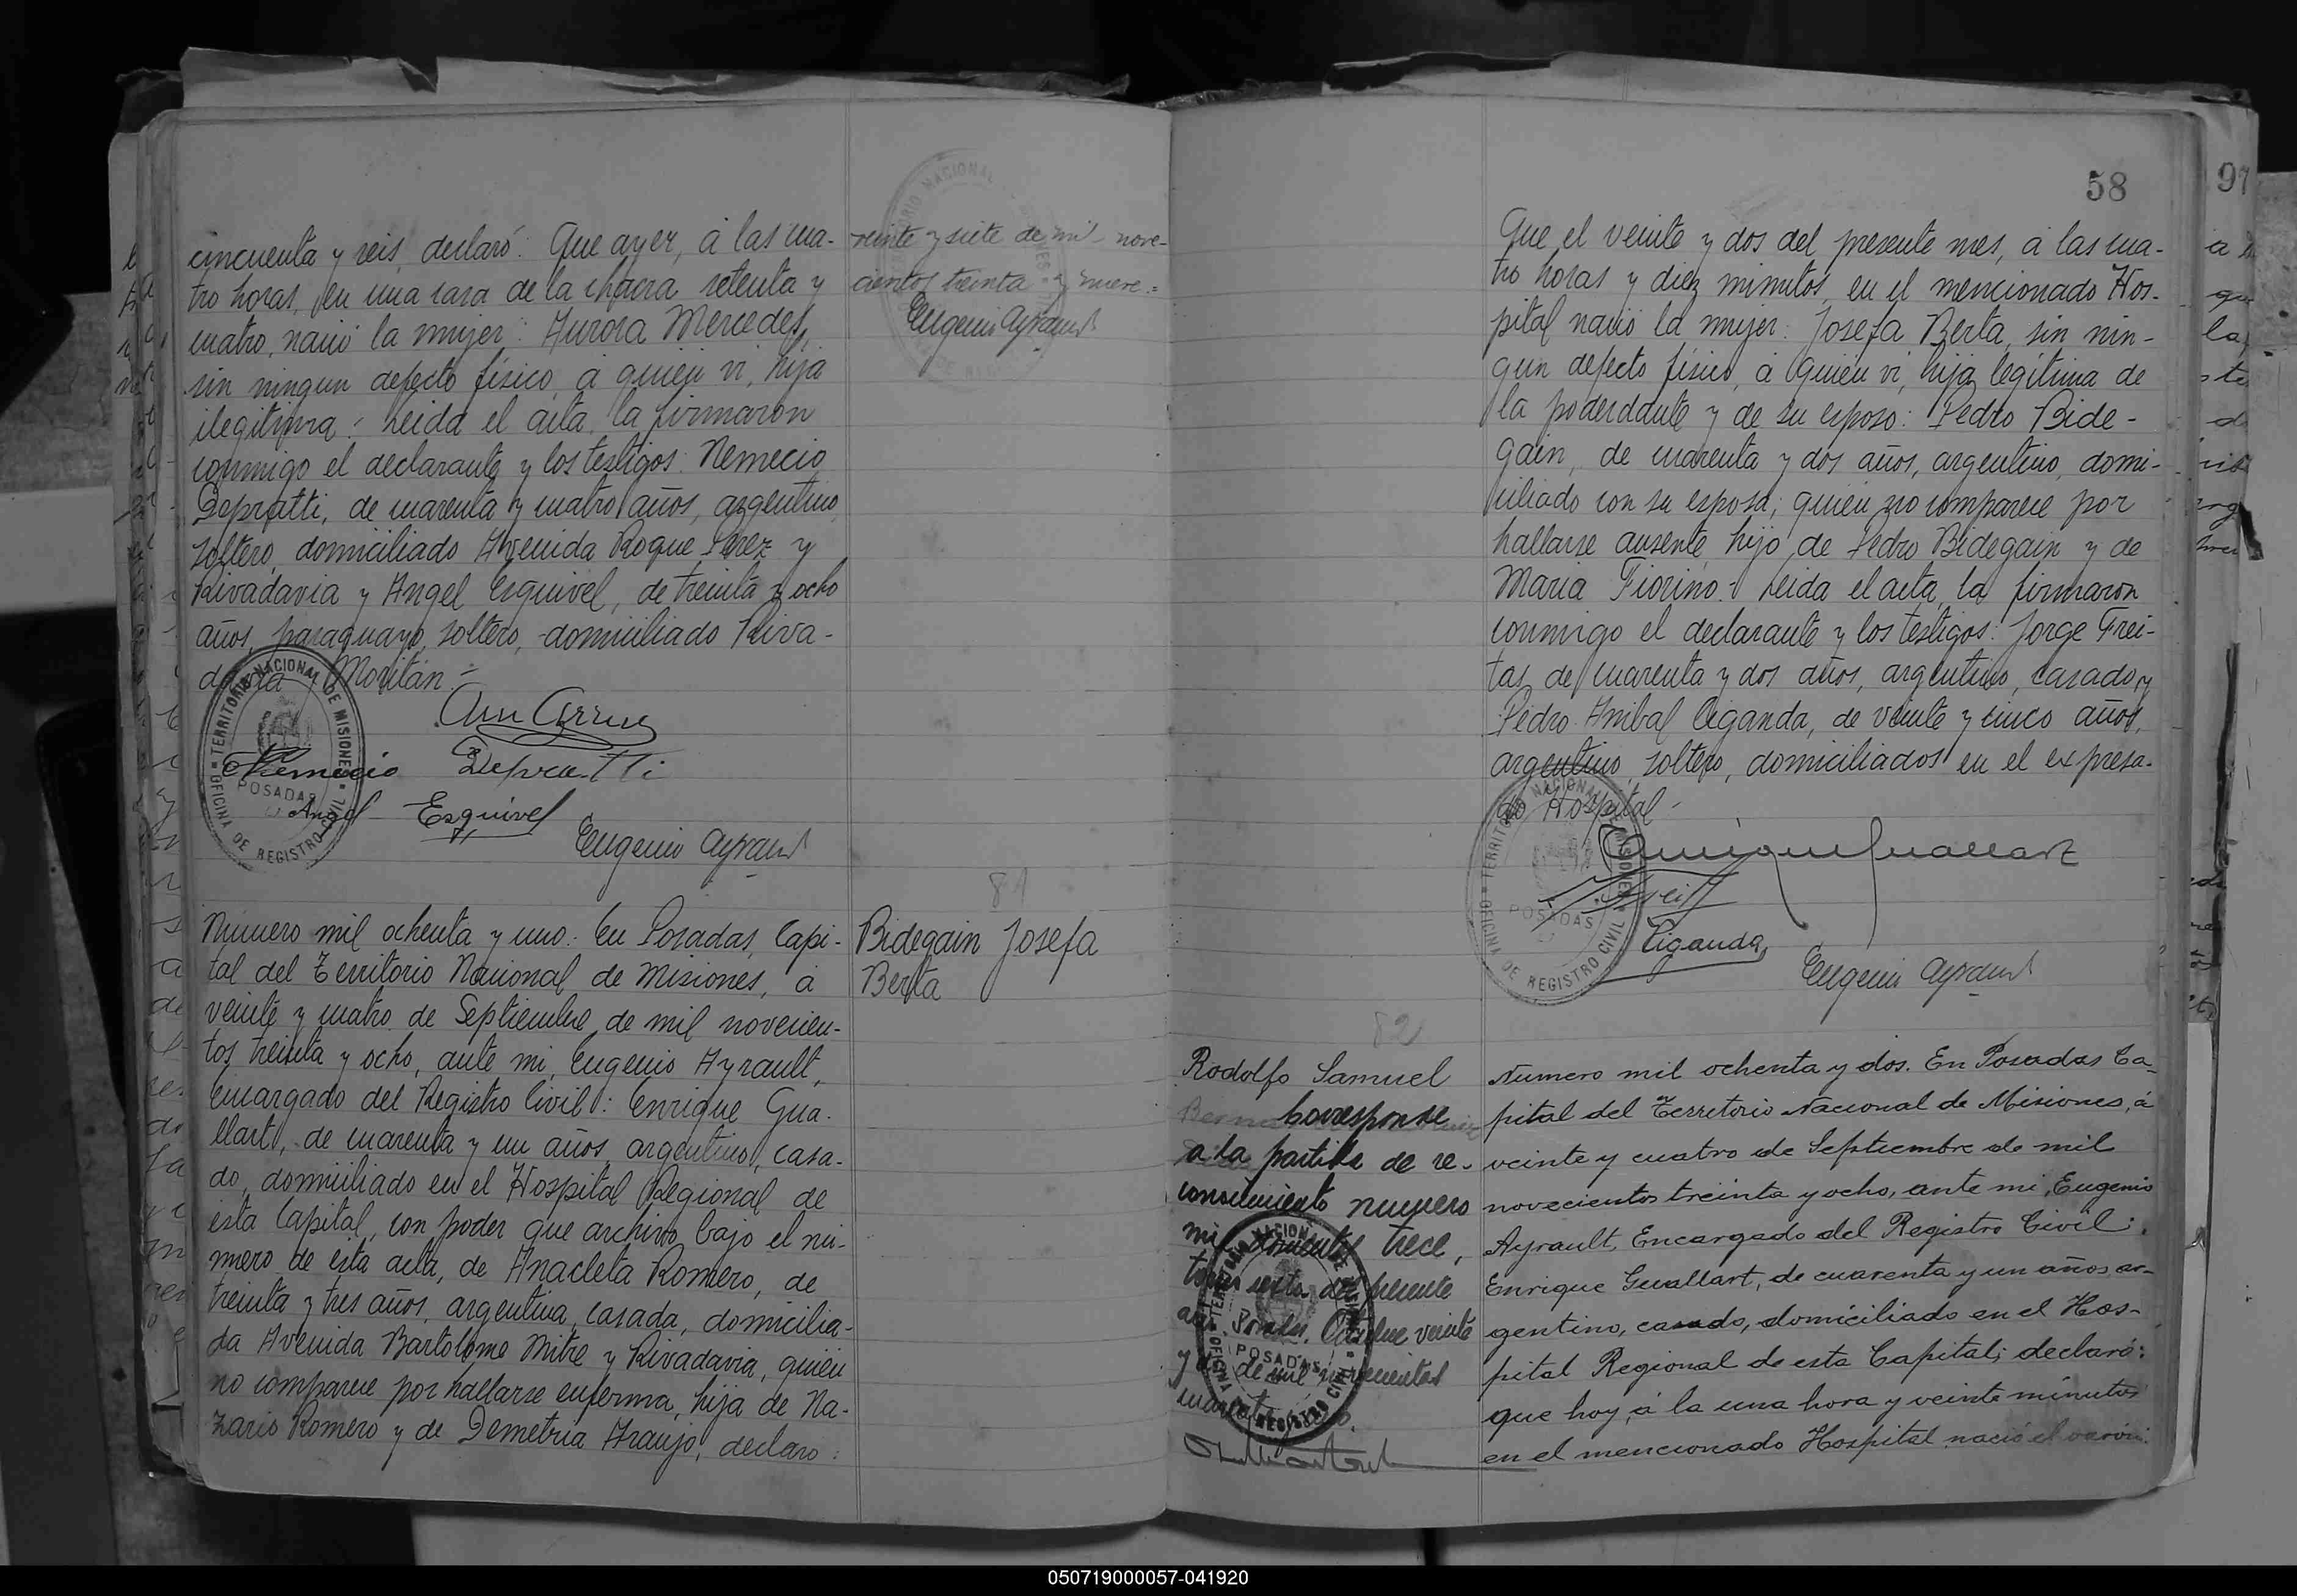 cincuenta y seis, declaró: Que ayer, á las cua-
tro horas, en una casa de la chacra setenta y
cuatro, nació la mujer: Aurora Mercedes,
sin ningun defecto físico, á quien vi, hija
ilegítima.- Leida el acta, la firmaron
conmigo el declarante y los testigos: Nemecio
Depratti, de cuarenta y cuatro años, argentino,
soltero, domiciliado Avenida Roque Perez y
Rivadavia y Angel Esquivel, de treinta y ocho
años, paraguayo, soltero, domiciliado Riva-
davia y Moritán.-
Nemecio Depratti
Angel Esquivel
Eugenio Ayrault
TERRITORIO NACIONAL DE MISIONES
POSADAS
OFICINA DE REGISTRO CIVIL
veinte y siete de mil nove-
cientos treinta y nueve.=
Eugenio Ayrault
81
Numero mil ochenta y uno: En Posadas, Capi-
tal del Territorio Nacional de Misiones, á
veinte y cuatro de Septiembre de mil novecien-
tos treinta y ocho, ante mi, Eugenio Ayrault,
Encargado del Registro Civil: Enrique Gua-
llart, de cuarenta y un años, argentino, casa-
do, domiciliado en el Hospital Regional de
esta Capital, con poder que archivo bajo el nú-
mero de esta acta, de Anacleta Romero, de
treinta y tres años, argentina, casada, domicilia-
da Avenida Bartolome Mitre y Rivadavia, quien
no comparece por hallarse enferma, hija de Na-
zario Romero y de Demetria Araujo, declaro:
Bidegain Josefa
Berta
58
97
Que el veinte y dos del presente mes, á las cua-
tro horas y diez minutos, en el mencionado Hos-
pital nació la mujer: Josefa Berta, sin nin-
gun defecto físico, á quien vi, hija legítima de
la poderdante y de su esposo: Pedro Bide-
gain, de cuarenta y dos años, argentino, domi-
ciliado con su esposa; quien no comparece por
hallarse ausente, hijo de Pedro Bidegain y de
Maria Fiorino.- Leida el acta, la firmaron
conmigo el declarante y los testigos: Jorge Frei-
tas, de cuarenta y dos años, argentino, casado y
Pedro Anibal Ciganda, de veinte y cinco años,
argentino, soltero, domiciliados en el expresa-
do Hospital.-
Enrique Guallart
Ciganda
Eugenio Ayrault
TERRITORIO NACIONAL DE MISIONES
POSADAS
OFICINA DE REGISTRO CIVIL
82
Rodolfo Samuel
Corresponde
a la partida de re-
conocimiento numero
mil doscientos trece,
tomo sexto del presente
año. Posadas, Octubre veinte
y de mil novecientos
cuarenta
Numero mil ochenta y dos. En Posadas Ca-
pital del Territorio Nacional de Misiones, á
veinte y cuatro de Septiembre de mil
novecientos treinta y ocho, ante mi, Eugenio
Ayrault, Encargado del Registro Civil:
Enrique Guallart, de cuarenta y un años ar-
gentino, casado, domiciliado en el Hos-
pital Regional de esta Capital; declaró:
que hoy, á la una hora y veinte minutos
en el mencionado Hospital nació el varón:
050719000057-041920